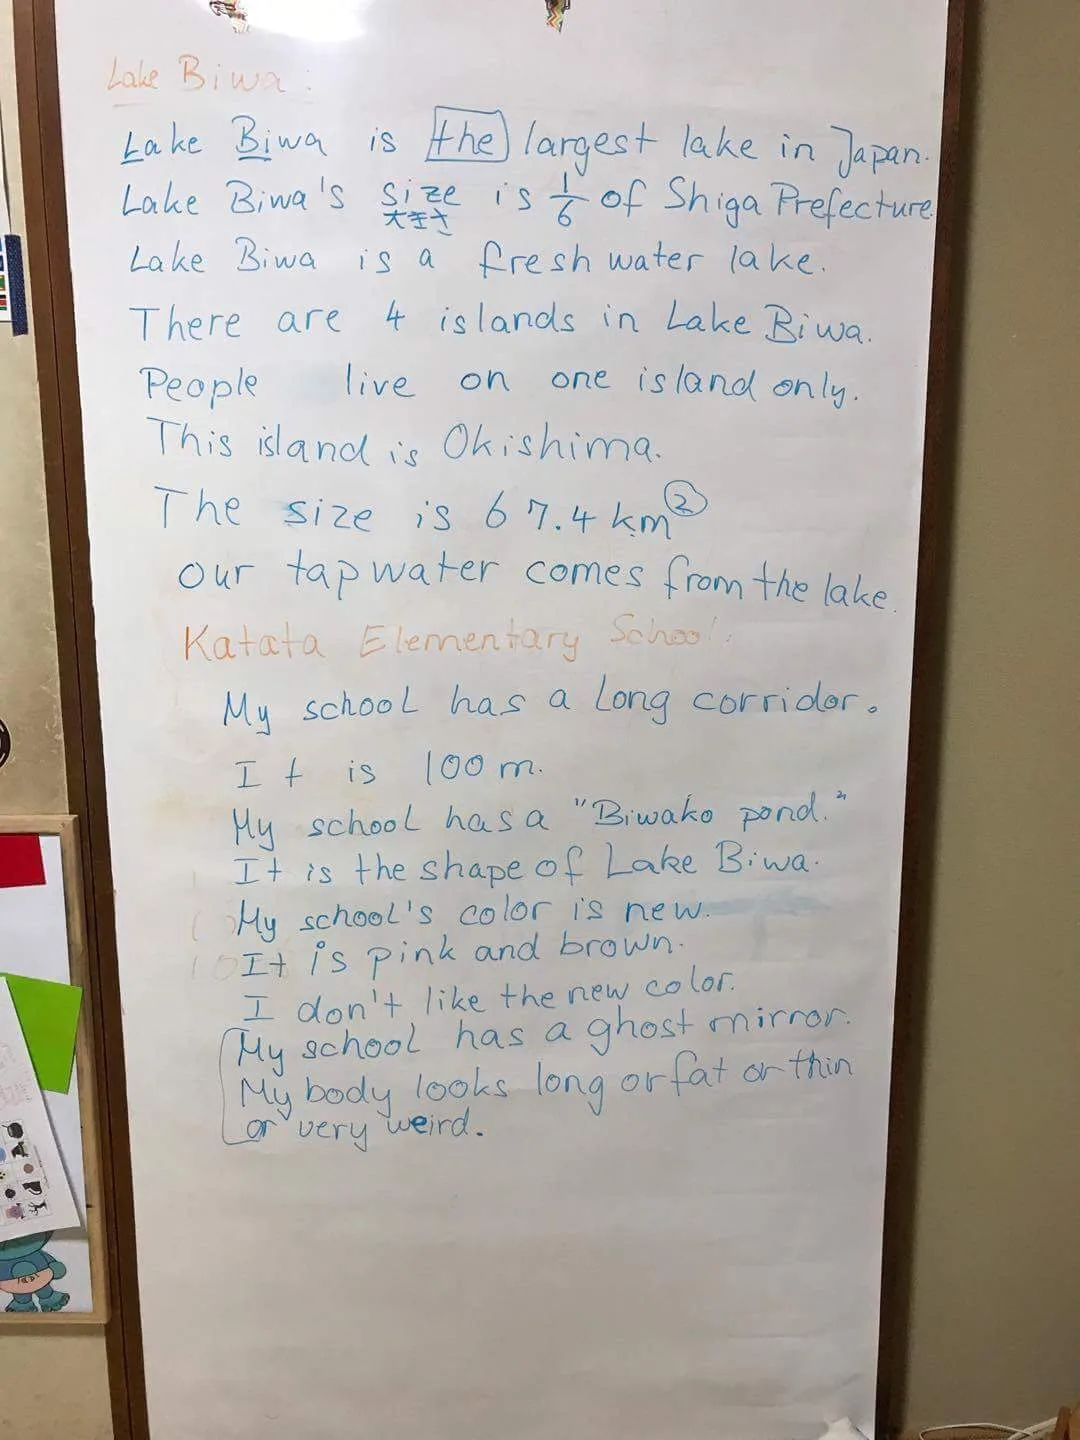 Lake Biwa:
Lake Biwa is the largest lake in Japan.
Lake Biwa's size is 1/6 of Shiga Prefecture.
大きさ
Lake Biwa is a fresh water lake.
There are 4 islands in Lake Biwa.
People live on one island only.
This island is Okishima.
The size is 67.4 km²
Our tap water comes from the lake.
Katata Elementary School:
My school has a long corridor.
It is 100 m.
My school has a "Biwako pond."
It is the shape of Lake Biwa.
My school's color is new.
It is pink and brown.
I don't like the new color.
My school has a ghost mirror.
My body looks long or fat or thin
or very weird.